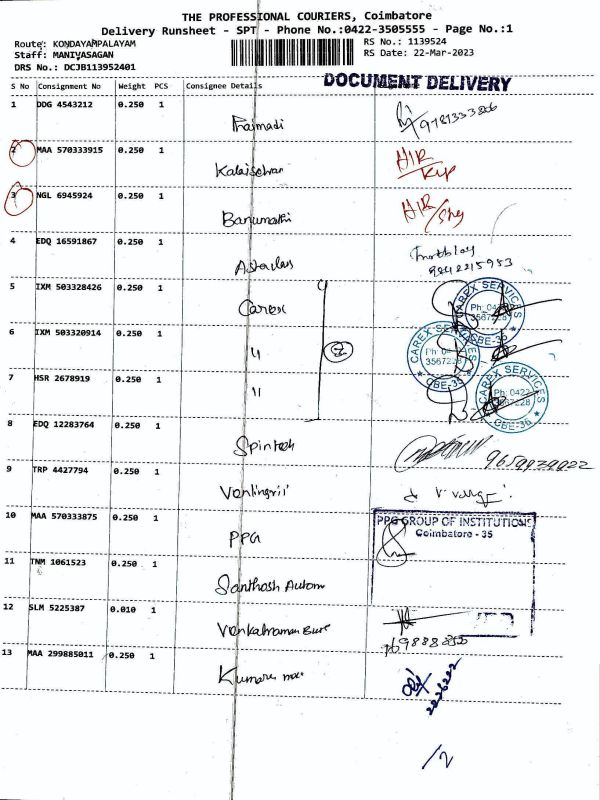 THE PROFESSIONAL COURIERS, Coimbatore
Delivery Runsheet - SPT - Phone No.:0422-3505555 - Page No.:1
Route: KONDAYAMPALAYAM
Staff: MANIYASAGAN
DRS No.: DCJB113952401
RS No.: 1139524
RS Date: 22-Mar-2023
DOCUMENT DELIVERY
S No Consignment No Weight PCS Consignee Details
1 DDG 4543212 0.250 1
2 MAA 570333915 0.250 1 Kalaiselvan
3 NGL 6945924 0.250 1 Banumathi
4 EDQ 16591867 0.250 1
9842215953
5 IXM 503328426 0.250 1 Carex
6 IXM 503320914 0.250 1 "
7 HSR 2678919 0.250 1 "
CAREX SERVICES Ph: 0422 3567228 CBE-35
CAREX SERVICES Ph: 0422 3567228 CBE-35
CAREX SERVICES Ph: 0422 3567228 CBE-35
8 EDQ 12283764 0.250 1 Spintech
9 TRP 4427794 0.250 1
10 MAA 570333875 0.250 1 PPG
PPG GROUP OF INSTITUTIONS
Coimbatore - 35
11 TNM 1061523 0.250 1 Santhosh Autom
12 SLM 5225387 0.010 1
13 MAA 299885011 0.250 1
2226222
/2